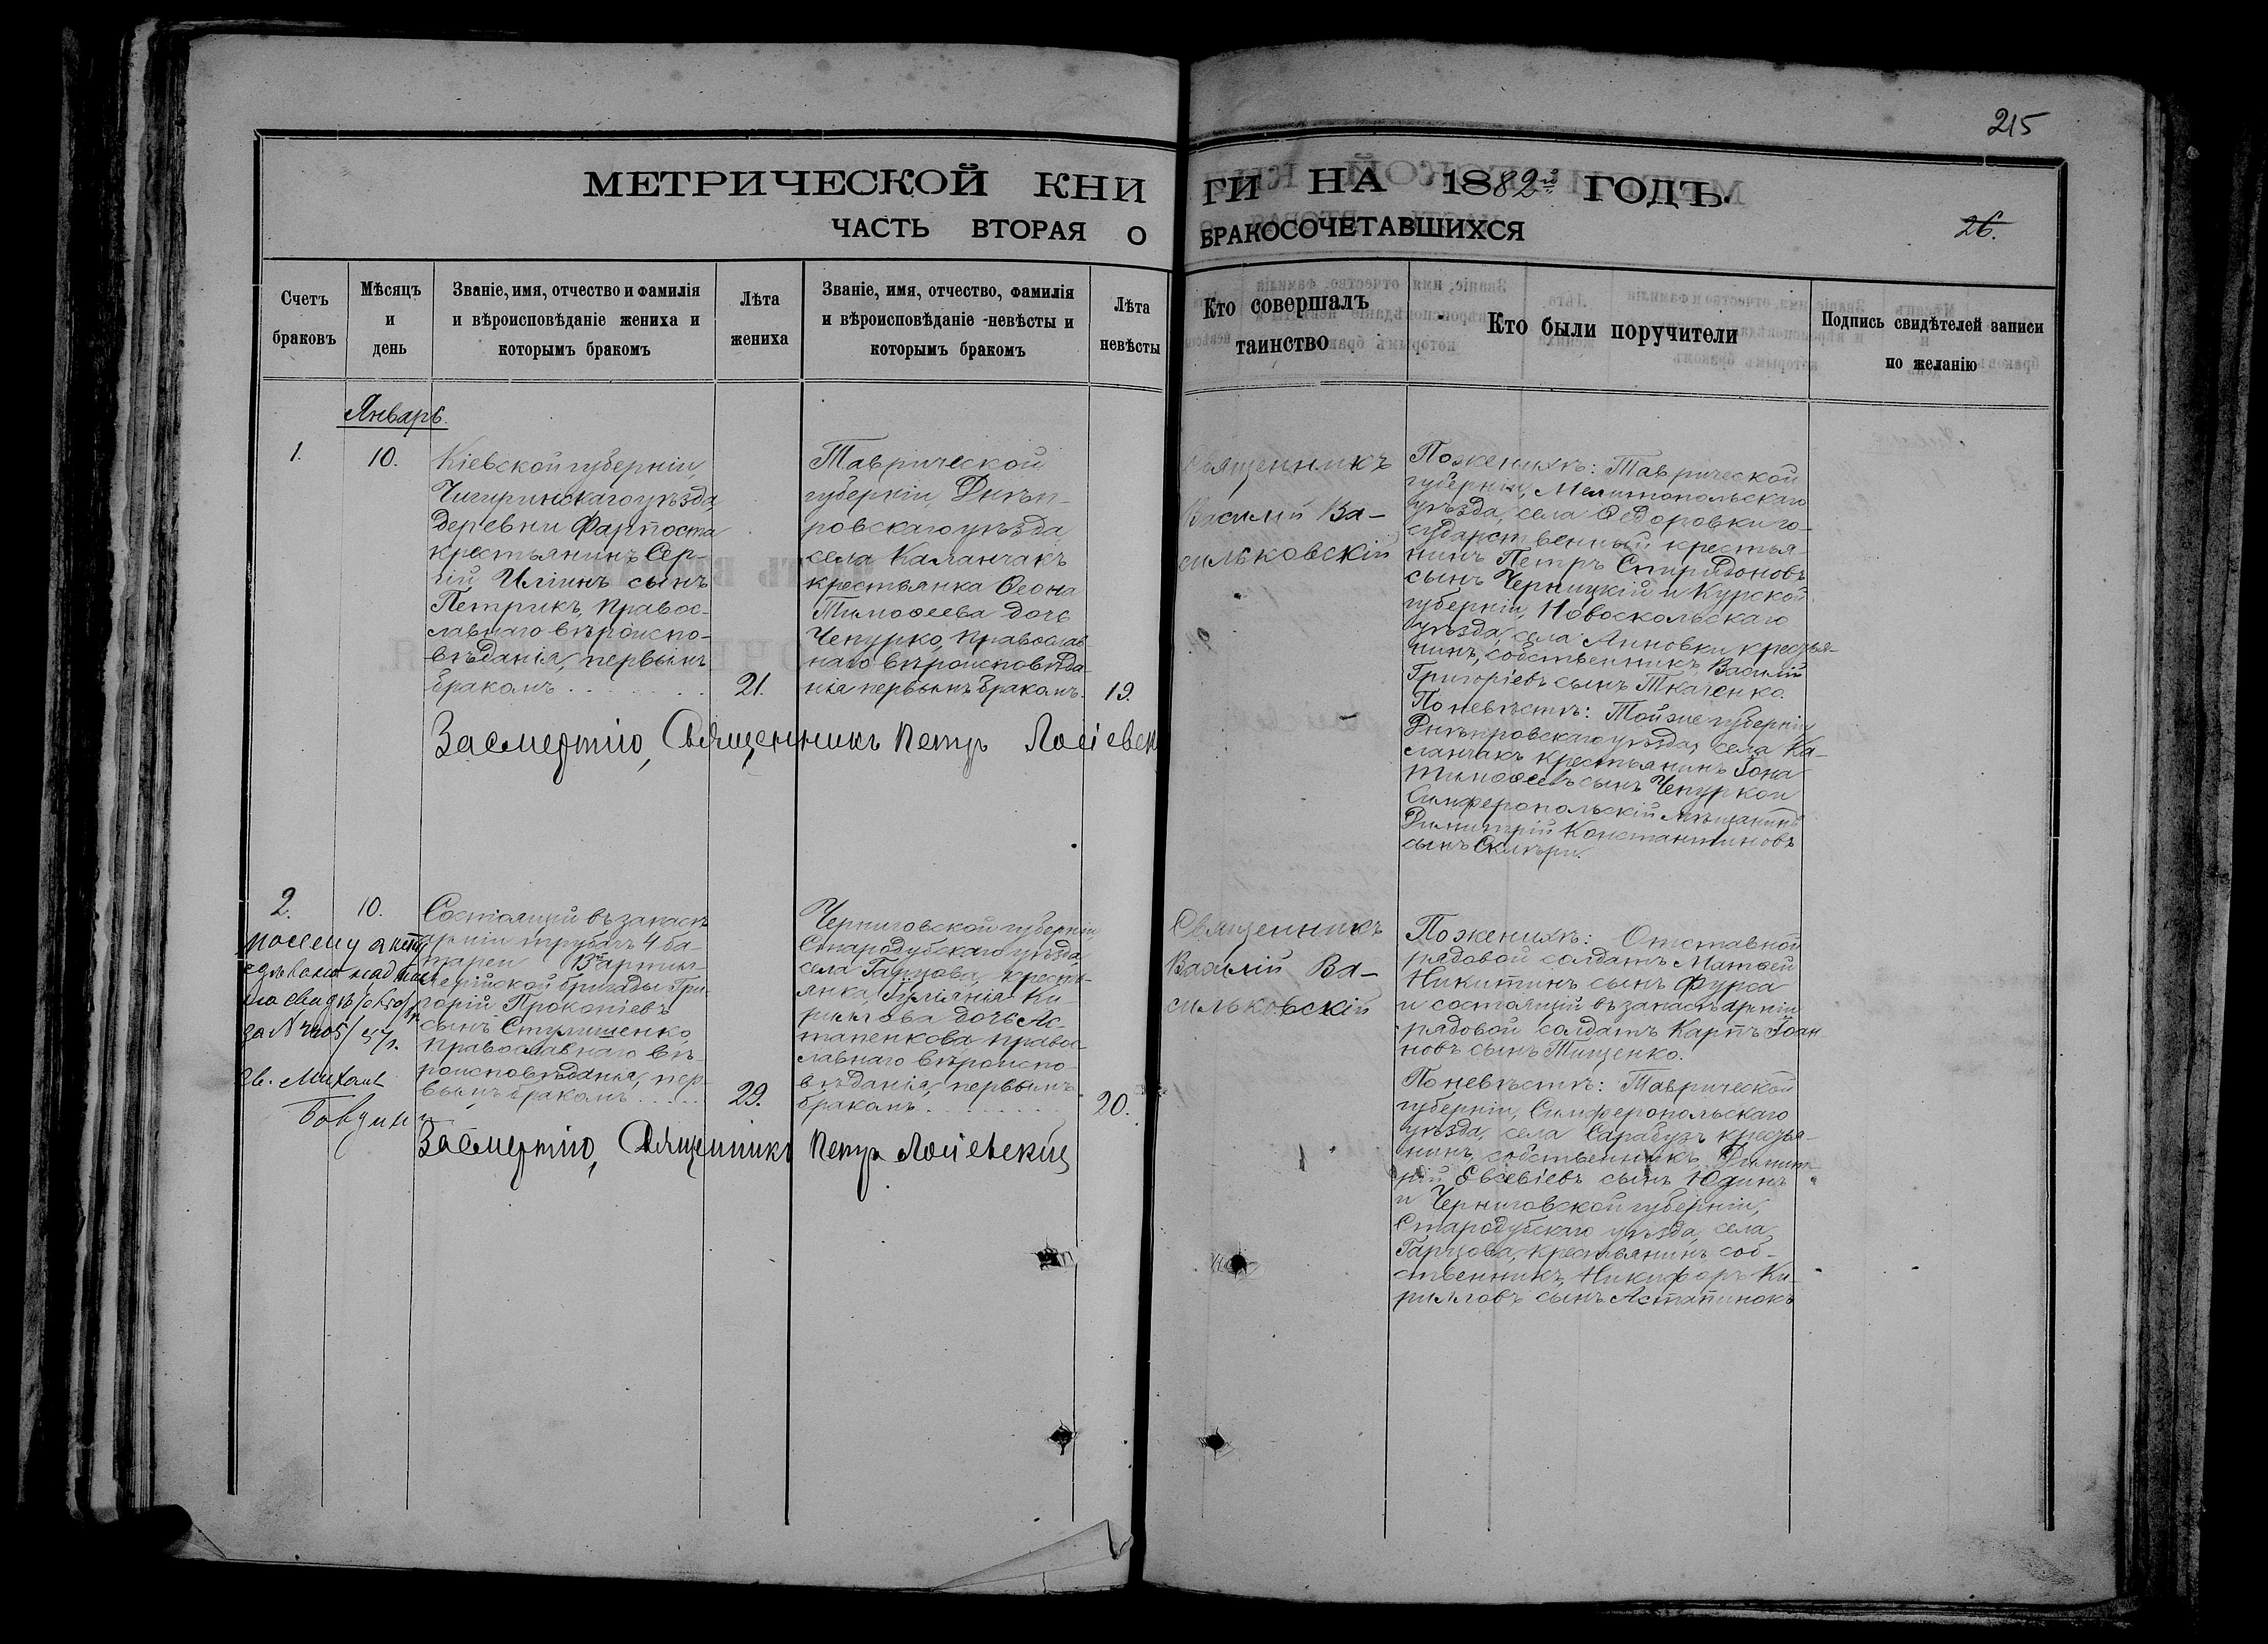 215
МЕТРИЧЕСКОЙ КНИ ГИ НА 1882й ГОДЪ.
ЧАСТЬ ВТОРАЯ О БРАКОСОЧЕТАВШИХСЯ
26.
Счетъ
браковъ
Мѣсяцъ
и
день
Званіе, имя, отчество и фамилія
и вѣроисповѣданіе жениха и
которымъ бракомъ
Лѣта
жениха
Званіе, имя, отчество, фамилія
и вѣроисповѣданіе невѣсты и
которымъ бракомъ
Лѣта
невѣсты
Кто совершалъ
таинство
Кто были поручители
Подпись свидѣтелей записи
по желанію
Январь.
1.
10.
Кіевской губерніи,
Чигиринскаго уѣзда,
деревни Фарпоста
крестьянинъ Сер-
гій Иліинъ сынъ
Петрикъ, правос-
лавнаго вѣроиспо-
вѣданія, первымъ
бракомъ . . . . . .
21.
Таврической
губерніи, Днѣп-
ровскаго уѣзда,
села Каланчакъ
крестьянка Ѳеона
Тимоѳеева дочь
Чепурко, православ-
наго вѣроисповѣда-
нія первымъ бракомъ.
19.
Священникъ
Василій Ва-
сильковскій
По женихѣ: Таврической
губерніи, Мелитопольскаго
уѣзда, села Ѳедоровки го-
сударственный крестья-
нинъ Петръ Спиридоновъ
сынъ Черницкій и Курской
губерніи, Новоскольскаго
уѣзда, села Анновки крестья-
нинъ, собственникъ, Василій
Григоріевъ сынъ Ткаченко.
По невѣстѣ: Той же губерніи
Днѣпровскаго уѣзда, села Ка-
ланчакъ крестьянинъ Іона
Тимоѳеевъ сынъ Чепурко и
Симферопольскій мѣщанинъ
Димитрій Константиновъ
сынъ
За смертію, Священникъ Петръ Лосіевск
2.
10.
Состоящій въ запасѣ
арміи трубачъ 4 ба-
тареи 13й артил-
лерійской бригады Гри-
горій Прокопіевъ
сынъ Стулишенко,
православнаго вѣ-
роисповѣданія, пер-
вымъ бракомъ . . . . .
29.
Черниговской губерніи
Стародубскаго уѣзда
села Гарцова, кресть-
янка, Іуліанія Ки-
риллова дочь Ас-
тапенкова правос-
лавнаго вѣроиспо-
вѣданія, первымъ
бракомъ . . . . . . . .
20.
Священникъ
Василій Ва-
сильковскій
По женихѣ: Отставной
рядовой солдатъ Матѳей
Никитинъ сынъ Фурса
и состоящій въ запасѣ арміи
рядовой солдатъ Карпъ Іоан-
новъ сынъ Тищенко.
По невѣстѣ: Таврической
губерніи, Симферопольскаго
уѣзда, села Сарабузъ крестья-
нинъ, собственникъ, Димит-
рій Евсевіевъ сынъ Юдинъ
и Черниговской губерніи,
Стародубскаго уѣзда, села
Гарцова, крестьянинъ соб-
ственникъ, Никифоръ Ки-
рилловъ сынъ Астапинокъ
За смертію, Священникъ Петръ Лосіевскій